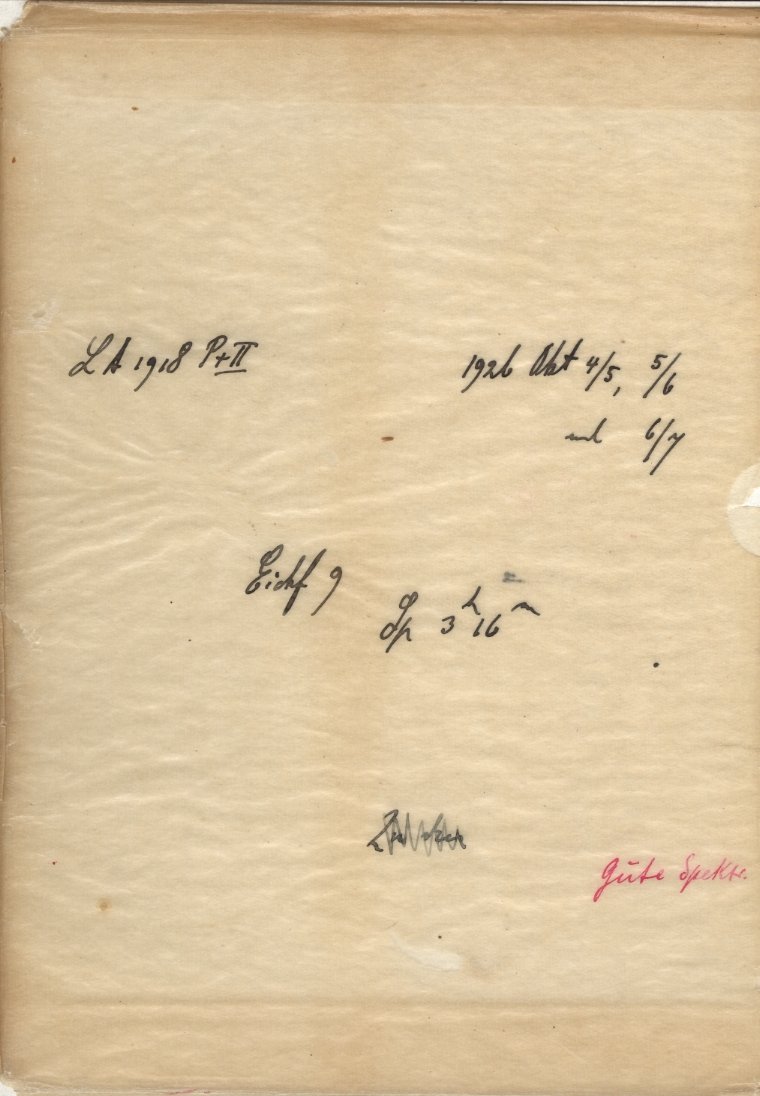 LA 1918 P+II
1926 Okt 4/5, 5/6
und 6/7
Eichf 9
Sp 3h 16m
Gute Spektr.